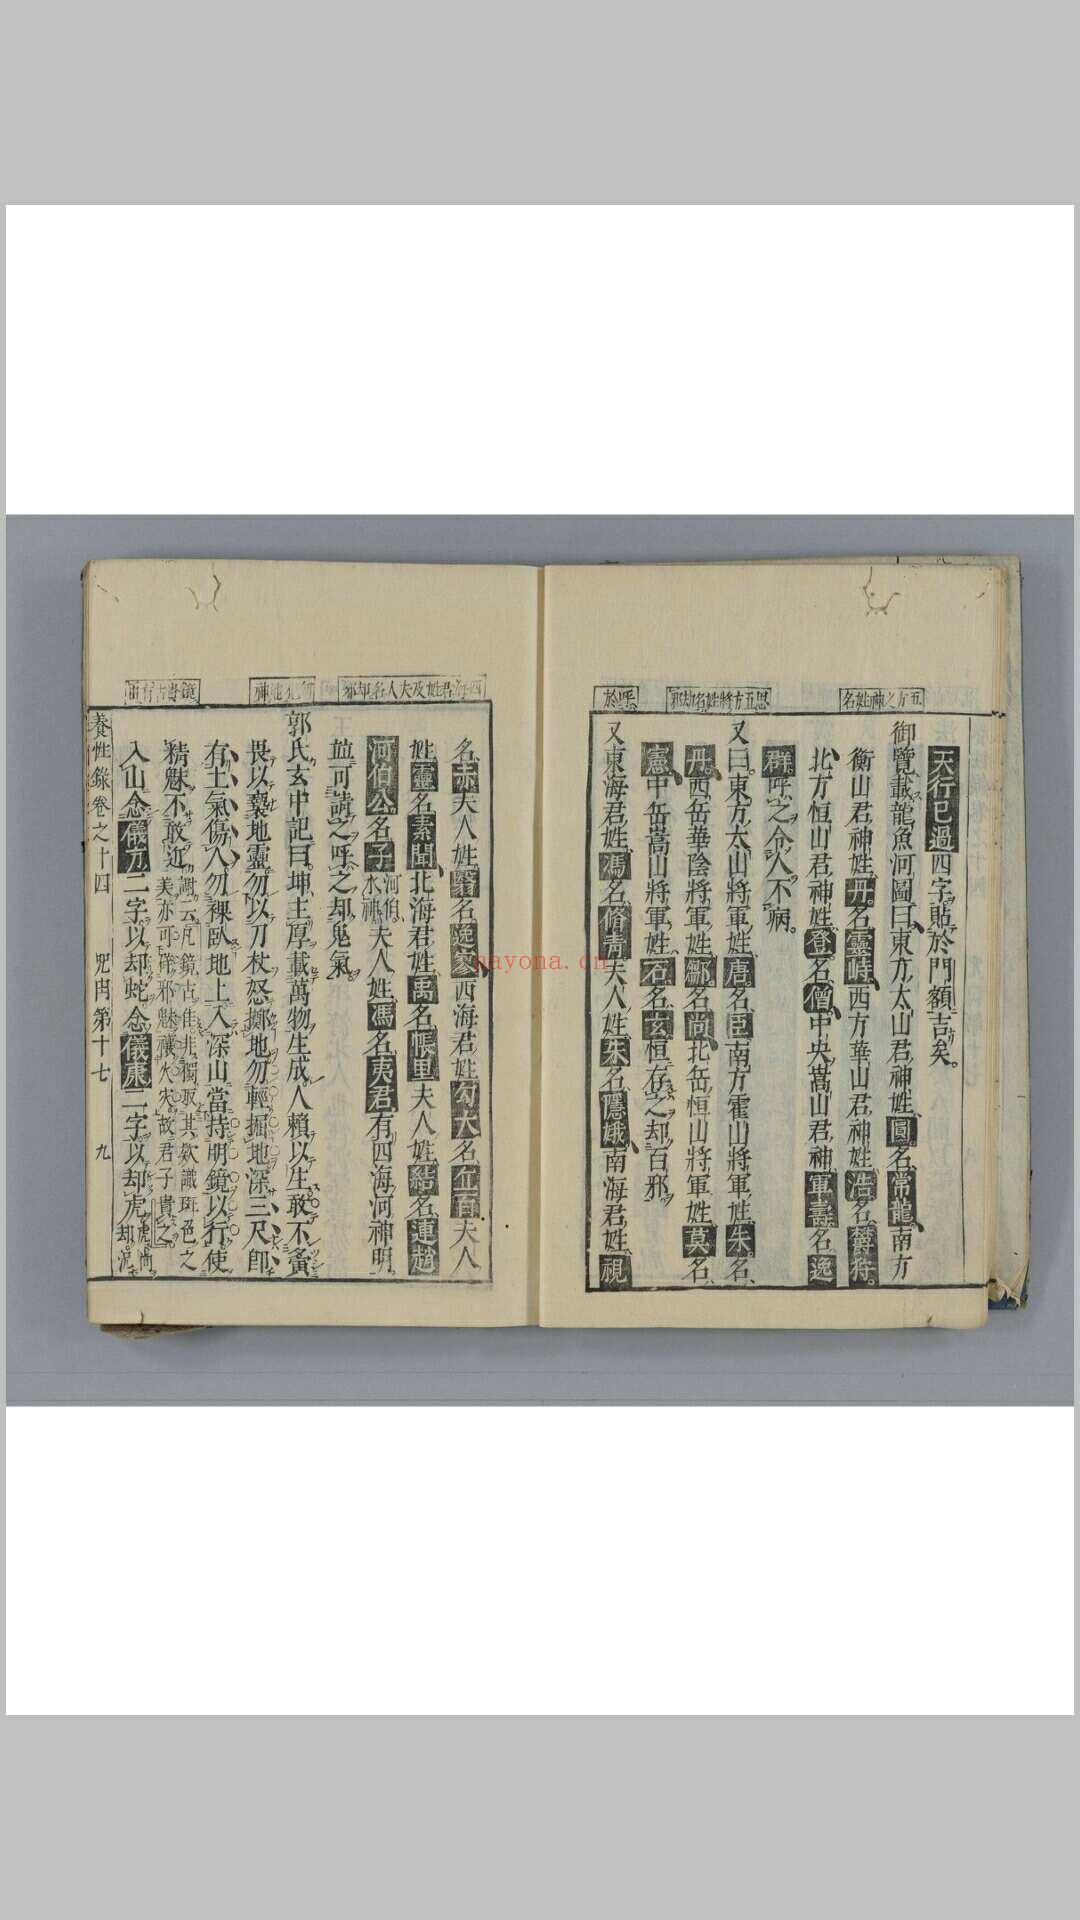 五方之神姓名
思五方將姓名却邪
呼於
天行已過四字貼於門額吉矣。
御覽載龍魚河圖曰東方太山君神姓圓名常龍南方
衡山君神姓丹名靈峙西方華山君神姓浩名欝狩
北方恒山君神姓登名僧中央嵩山君神軍壽名逸
群呼之令人不病。
又曰東方太山將軍姓唐名臣南方霍山將軍姓朱名
丹西岳華陰將軍姓鄒名尚北岳恒山將軍姓莫名
惠中岳嵩山將軍姓石名玄恒存之却百邪
又東海君姓馮名脩青夫人姓朱名隱娥南海君姓視
四海君姓及夫人名却邪
名赤夫人姓翳名逸寥西海君姓勾大名丘百夫人
姓靈名素聞北海君姓禹名帳里夫人姓結名連翹
河伯公名子河伯水神夫人姓馮名夷君有四海河神明
並可請之呼之却鬼氣
郭氏玄中記曰坤主厚載萬物生成人賴以生敢不
畏以褻地靈勿以刀杖怒擲地勿輕掘地深三尺即
有土氣傷人勿裸臥地上入深山當持明鏡以行使
精魅不敢近謝云凡鏡古佳非獨取其欵識斑色之美亦可辟邪魅禳火灾故君子貴之
入山念儀刀二字以却蛇念儀康二字以却虎
養性錄卷之十四 咒由第十七 九